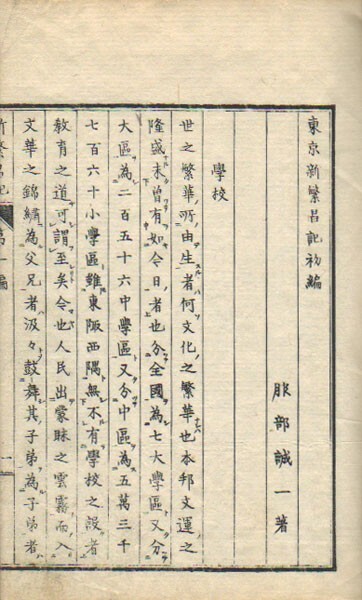 東京新繁昌記初編
服部誠一著
學校
世之繁華所由生者何文化之繁華也本邦文運之
隆盛未曾有如今日者也分全國為七大學區又分
大區為二百五十六中學區又分中區為五萬三千
七百六十小學區雖東陬西隅無不有學校之設者
教育之道可謂至矣令也人民出蒙昧之雲霧而入
文華之錦繡為父兄者汲々鼓舞其子弟為子弟者
新繁昌記 第一編 一